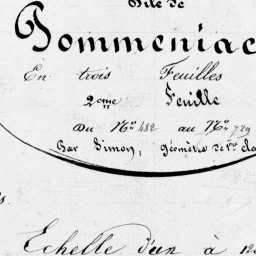 dite de
Pommeniac
En trois Feuilles
2eme Feuille
Du No 482 au No 729
Par Simon, géomètre de 1re cla
Echelle d'un à